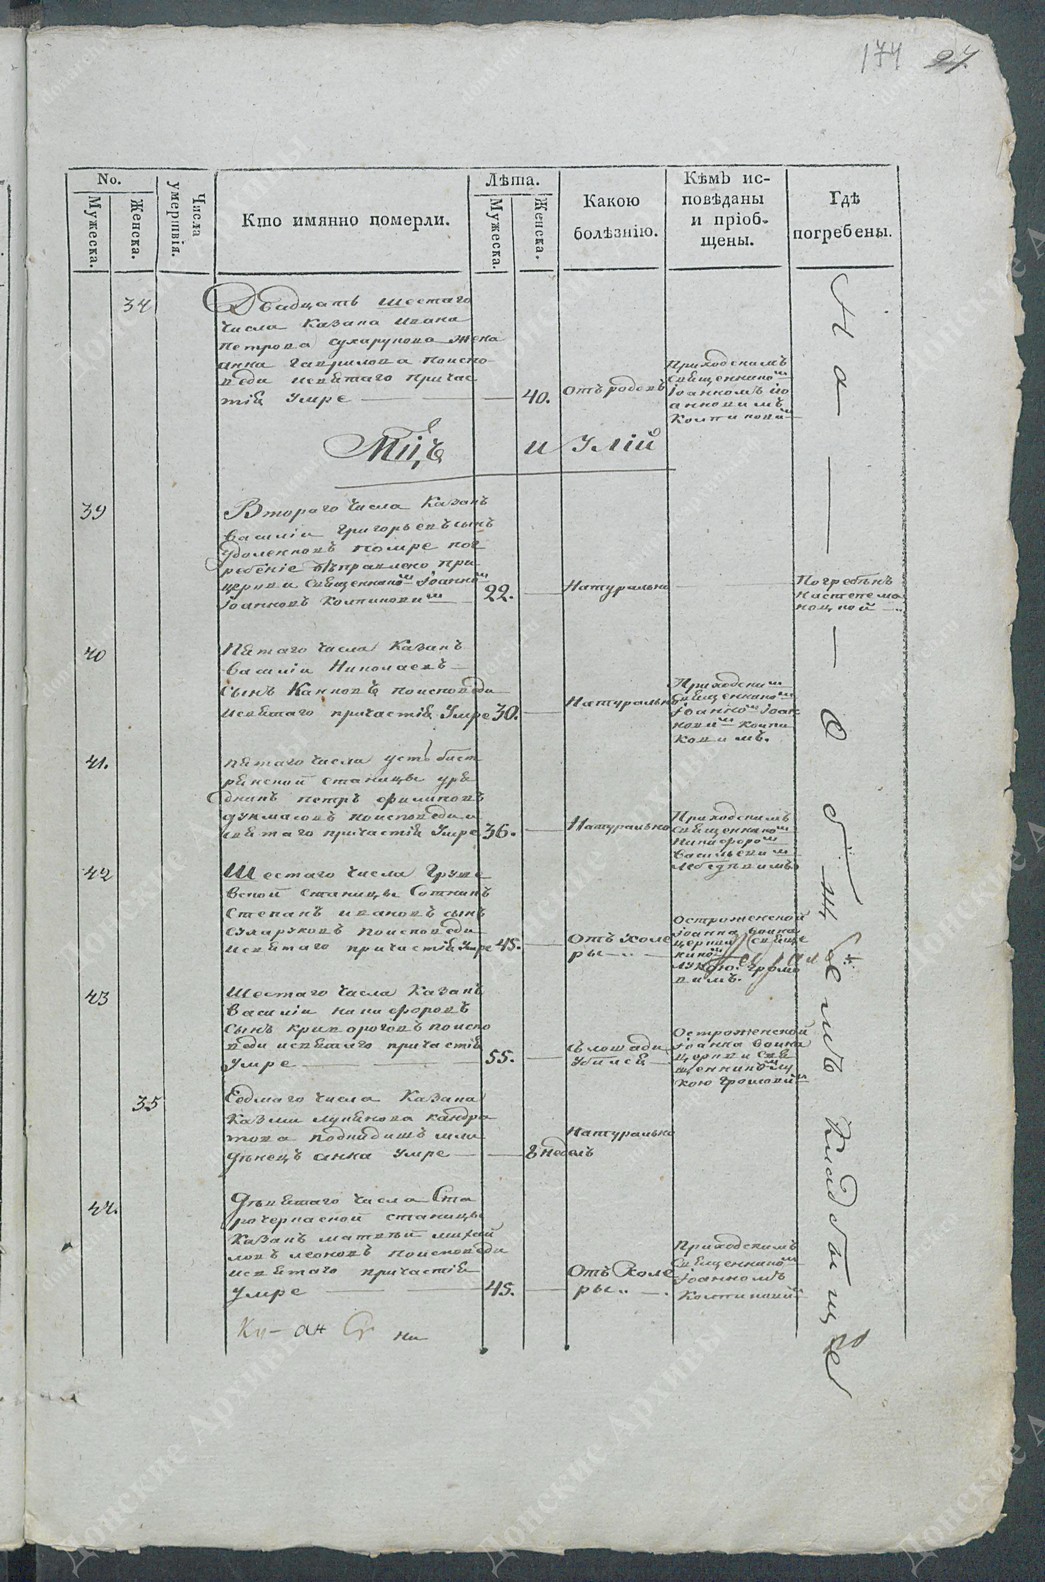 174 27.
No.
Мужеска.
Женска.
Числа умертвія.
Кто имянно померли.
Лѣта.
Мужеска.
Женска.
Какою болѣзнію.
Кѣмъ ис-
повѣданы
и пріоб-
щены.
Гдѣ
погребены.
34
Двадцать шестаго
числа Казака Ивана
Петрова Сухарукова жена
Анна Гаврилова поиспо
веди исвятаго причас
тія умре
40.
Отъ родовъ
Приходскимъ
священнико м
Іоанномъ Іо
анновимъ
На — — — Общемъ кладбищѣ
Мцъ Иулій
39
Втораго числа Казакъ
Василій Григорьевъ сынъ
помре пог
ребеніе
церкви священнико м Іоанно м
22.
Натурально
Погребенъ
40
Пятаго числа Казакъ
Василій Николаевъ
сынъ поисповеди
исвятаго причастія умре
30.
Натурально
Приходски м
священнико м
Іоанно м Іоан
нови м
41.
Пятаго числа усть быст
рянской станицы уря
дникъ Петръ Филиповъ
поисповеди и
святаго причастія умре
36.
Натурально
Приходскимъ
священнико м
Никифоро м
Васильеви м
Лебедевимъ
42
Шестаго числа Груше
вской станицы Сотникъ
Степанъ Ивановъ сынъ
Сухаруковъ поисповеди
исвятаго причастія умре
45.
Отъ холе
ры
Остроженской
Іоанна воина
церкви Свяще
нико м
Лукою Громо
вимъ.
43
Шестаго числа Казакъ
Василій Никифоровъ
сынъ Криворотовъ поиспо
веди исвятаго причастія
умре
55.
Съ лошади
убился
Остроженской
Іоанна воина
церкви Свя
щенникомъ Лу
кою Громови м
35
Седмаго числа Казака
Казми Лукянова Кандра
това подкидишъ мла
дѣнецъ Анна умре
8 недель
Натурально
44.
Девятаго числа Ста
рочеркаской станицы
Казакъ Матвѣй Михай
ловъ Леоновъ поисповеди
исвятаго причастія
умре
45.
Отъ Холе
ры
Приходскимъ
Священнико м
Іоанномъ
Донские Архивы